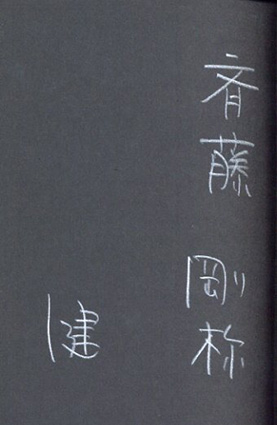 斉藤 剛
健